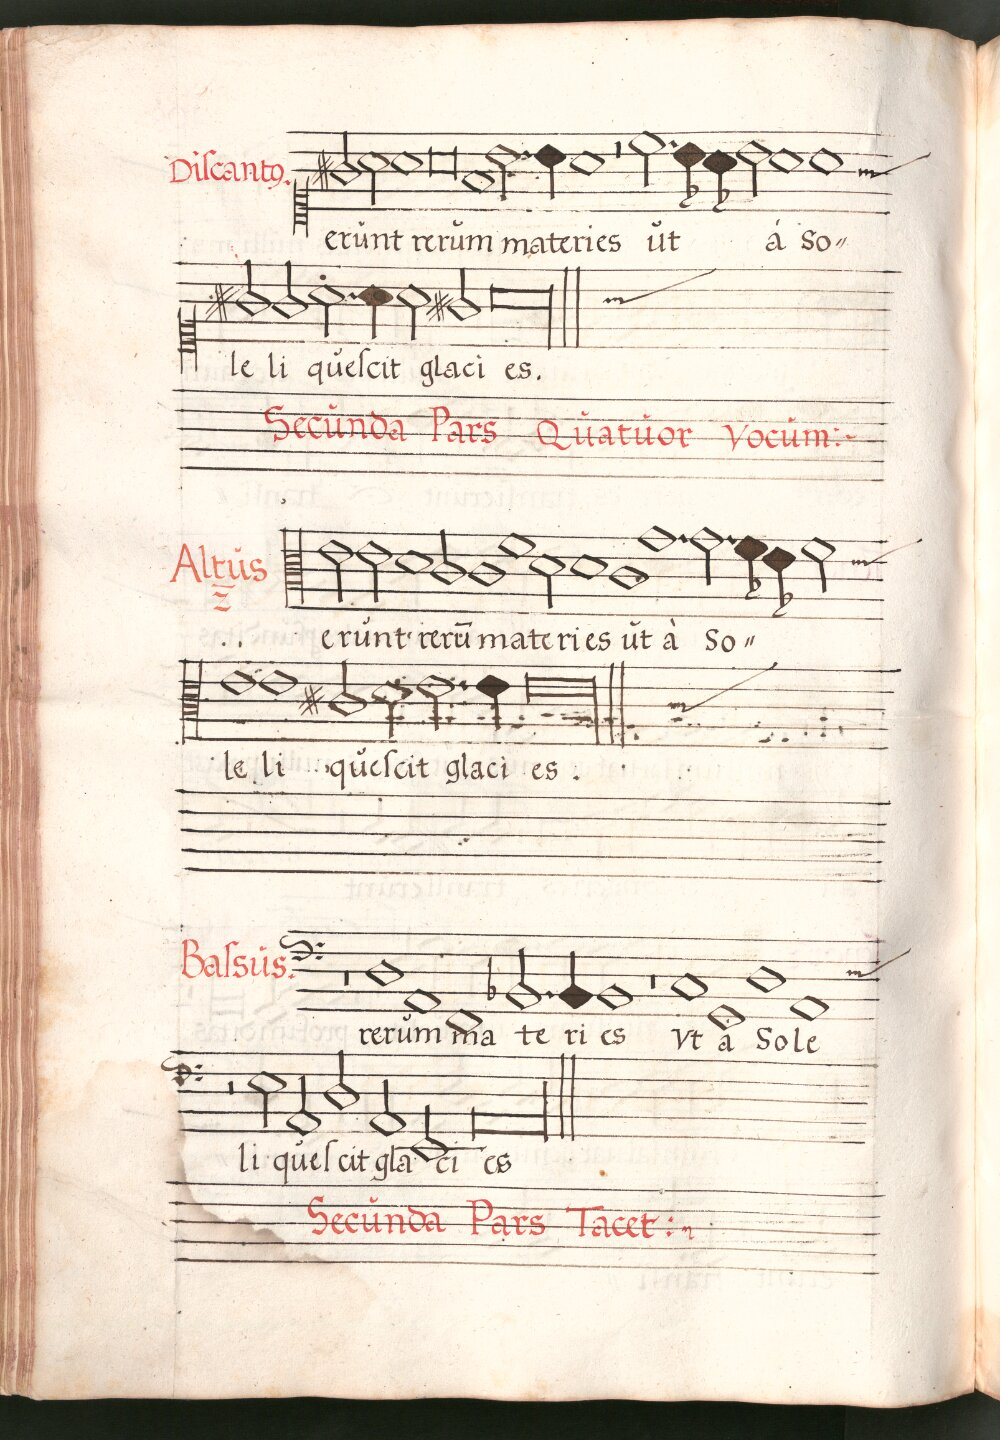 Discantꝰ.
erunt rerum materies ut á So〃
le li quescit glaci es.
Secunda Pars Quatuor Vocum:~
Altus
2
erunt rerū materies ut à So〃
le li quescit glaci es.
Bassus.
rerum ma te ri es Vt a Sole
li quescit gla ci es
Secunda Pars Tacet:~